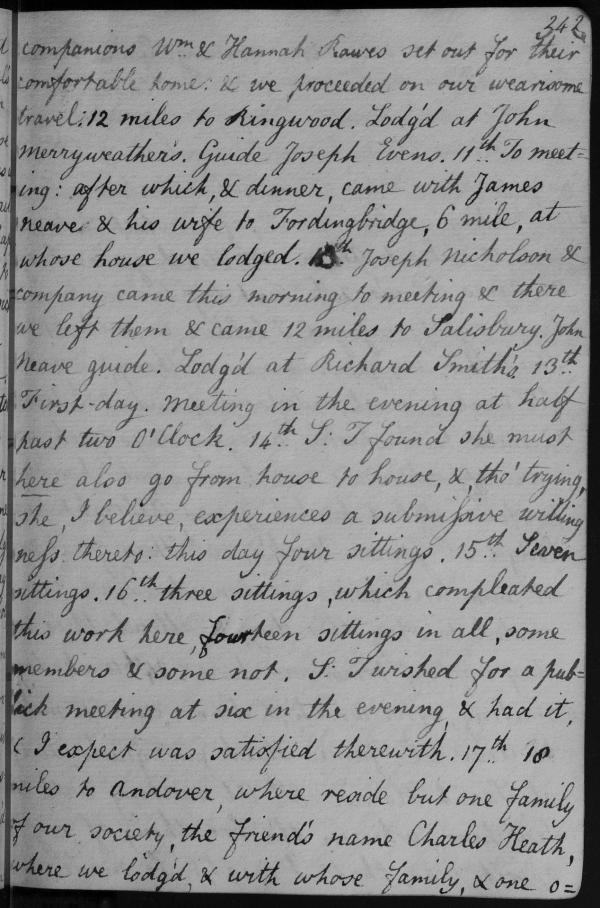 242
companions Wm & Hannah Rawes set out for their
comfortable home: & we proceeded on our wearisome
travel: 12 miles to Ringwood. Lodg'd at John
Merryweather's. Guide Joseph Evens. 11th To meet=
ing: after which, & dinner, came with James
Neave & his wife to Fordingbridge, 6 mile, at
whose house we lodged. th Joseph Nicholson &
company came this morning to meeting & there
we left them & came 12 miles to Salisbury. John
Neave guide. Lodg'd at Richard Smith's. 13th
First-day. Meeting in the evening at half
past two O'Clock. 14th S: T found she must
here also go from house to house, &, tho' trying,
she, I believe, experiences a submissive willing
ness thereto: this day four sittings. 15th Seven
sittings. 16th three sittings, which compleated
this work here, fourteen sittings in all, some
members & some not. S: T wished for a pub=
lick meeting at six in the evening, & had it,
& I expect was satisfied therewith. 17th 18
miles to Andover, where reside but one family
of our society, the friend's name Charles Heath,
where we lodg'd, & with whose family, & one o=